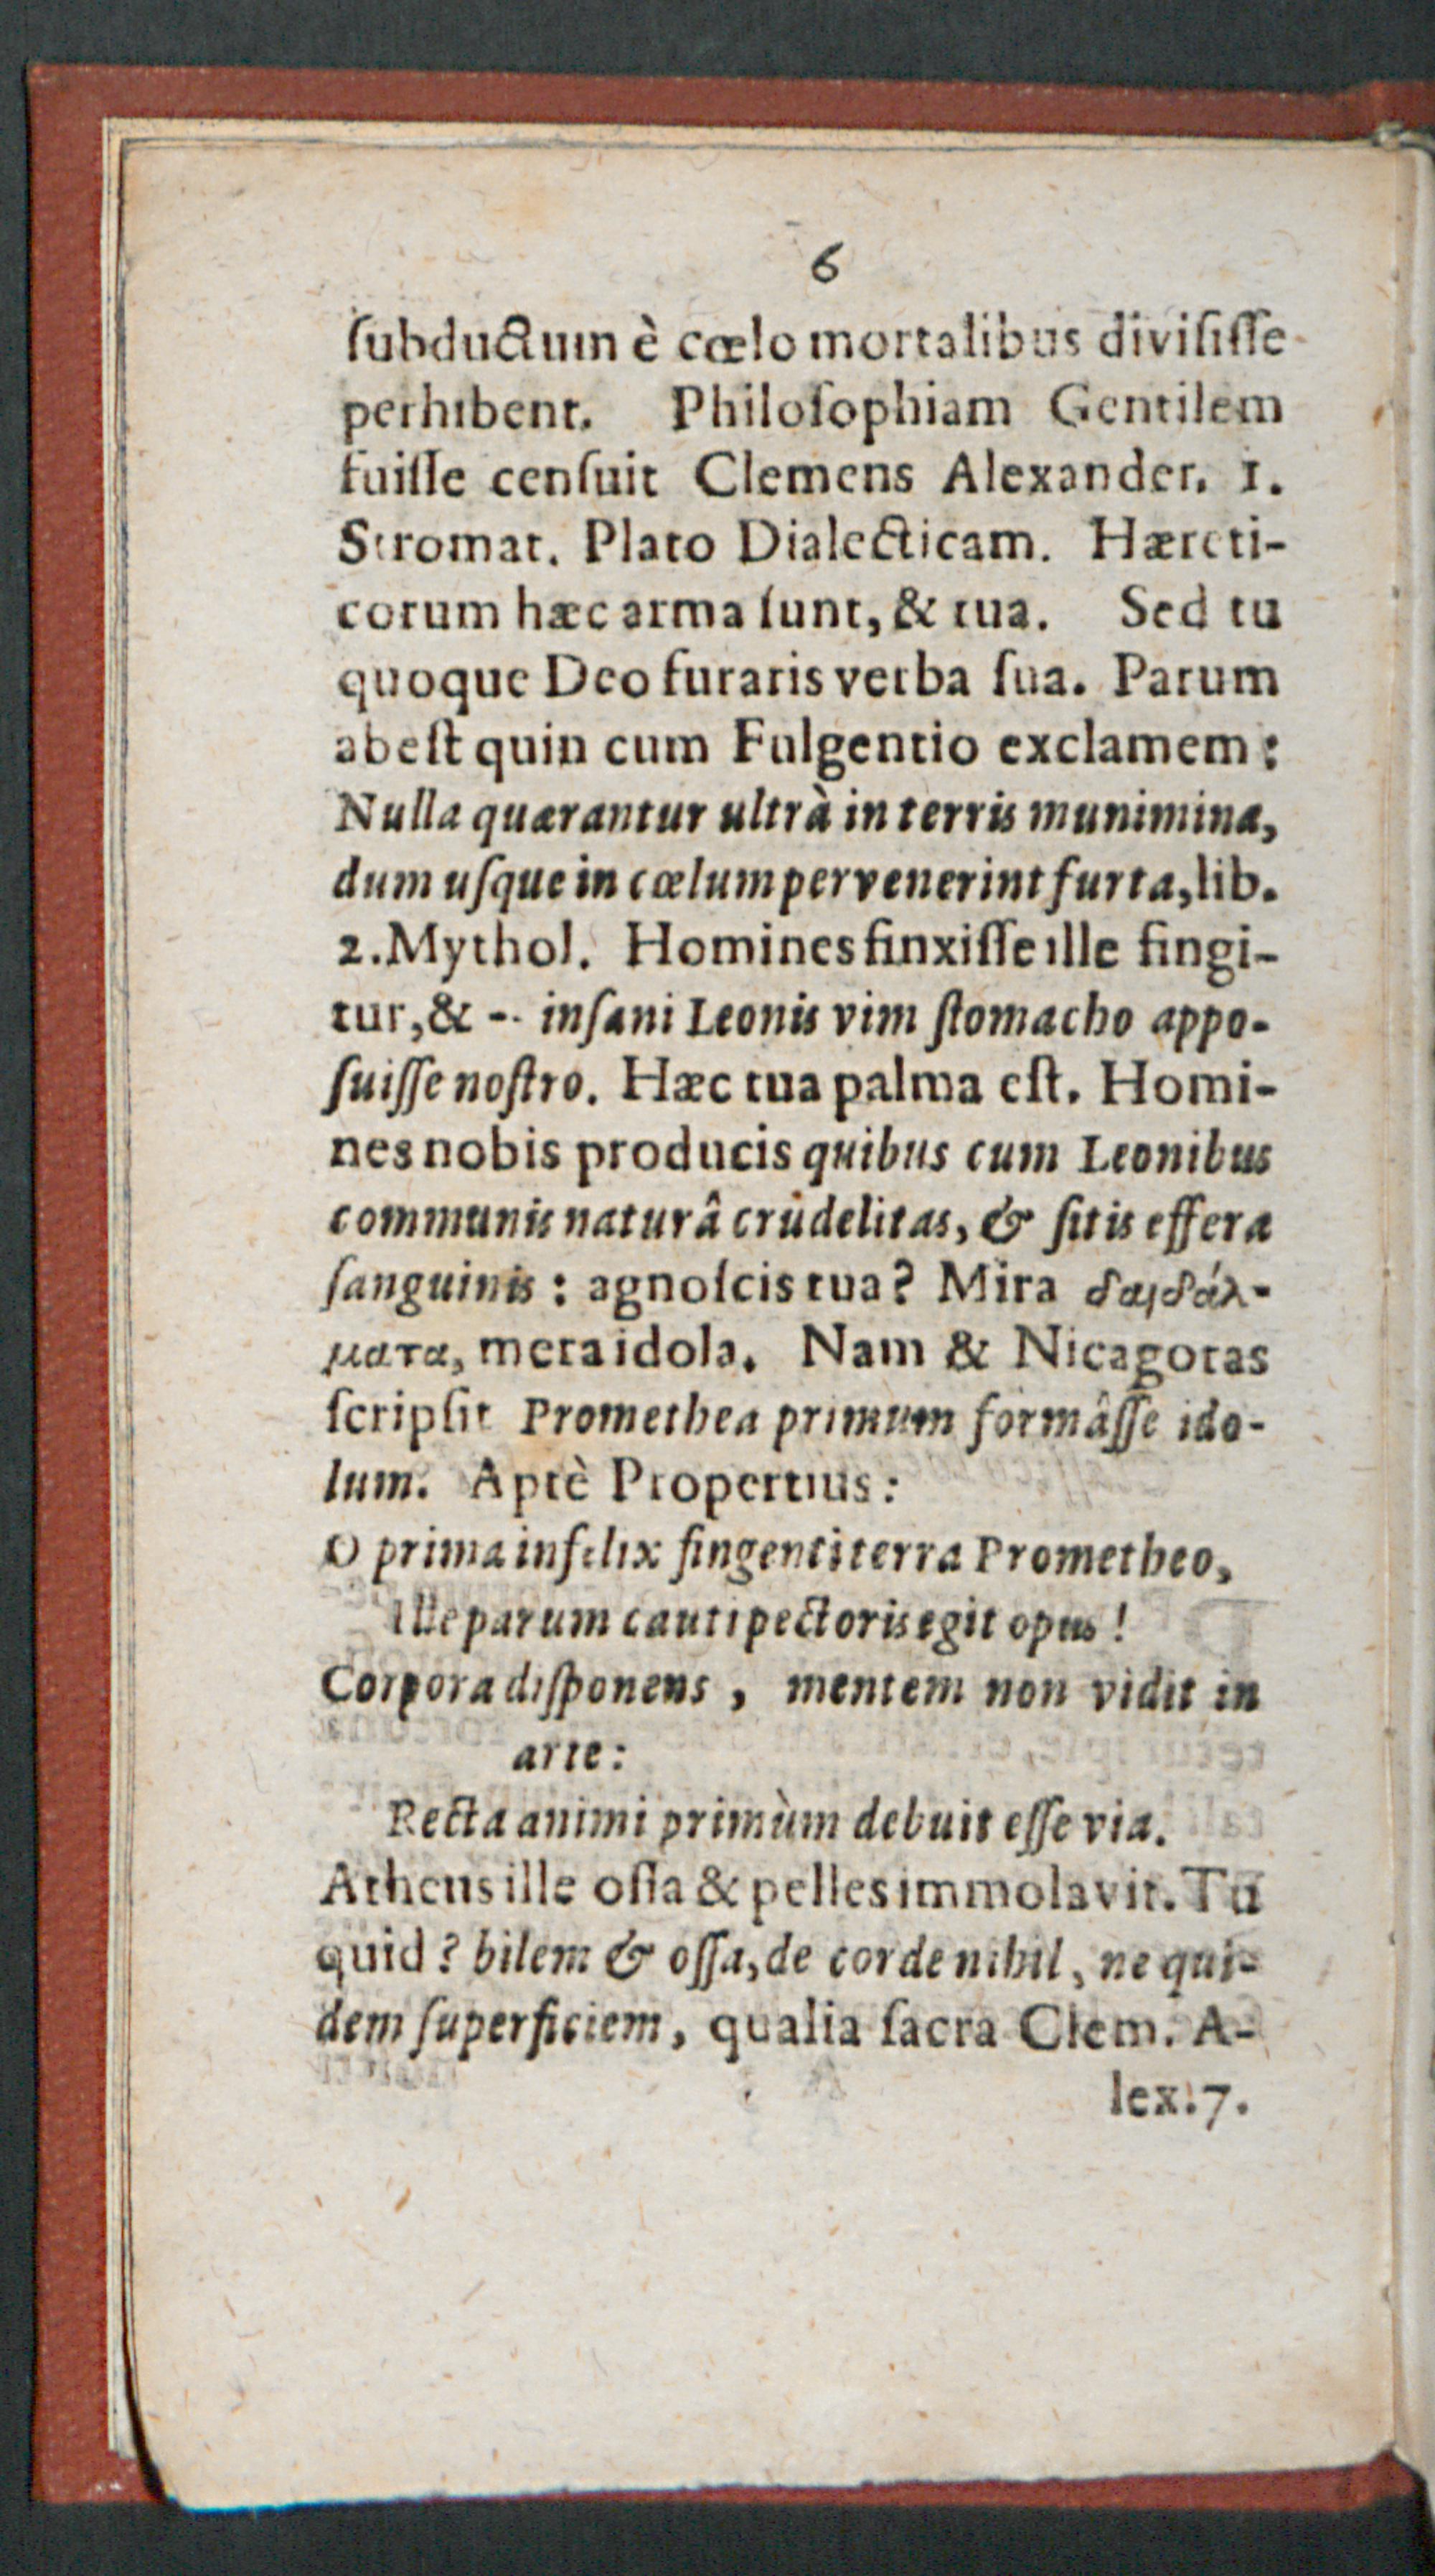 6
ſubductum è cœlo mortalibus diviſiſſe
perhibent. Philoſophiam Gentilem
fuiſſe cenſuit Clemens Alexander. 1.
Stromat. Plato Dialecticam. Hæreti-
corum hæc arma ſunt, & tua. Sed tu
quoque Deo furaris verba ſua. Parum
abeſt quin cum Fulgentio exclamem:
Nulla quærantur ultrà in terris munimina,
dum uſque in cœlum pervenerint furta, lib.
2. Mythol. Homines finxiſſe ille fingi-
tur, & -- inſani Leonis vim ſtomacho appo-
ſuiſſe noſtro. Hæc tua palma eſt. Homi-
nes nobis producis quibus cum Leonibus
communis naturâ crudelitas, & ſitis effera
ſanguinis: agnoſcis tua? Mira δαιδάλ-
ματα, mera idola. Nam & Nicagoras
ſcripſit Promethea primum formâſſe ido-
lum. Aptè Propertius:
O prima infelix fingenti terra Prometheo,
Ille parum cauti pectoris egit opus!
Corpora diſponens, mentem non vidit in
arte:
Recta animi primùm debuit eſſe via.
Atheus ille oſſa & pelles immolavit. Tu
quid? bilem & oſſa, de corde nihil, ne qui-
dem ſuperficiem, qualia ſacra Clem. A-
lex. 7.